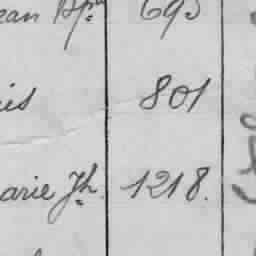 ean Bpte 695
is 801
arie Jh. 1218.